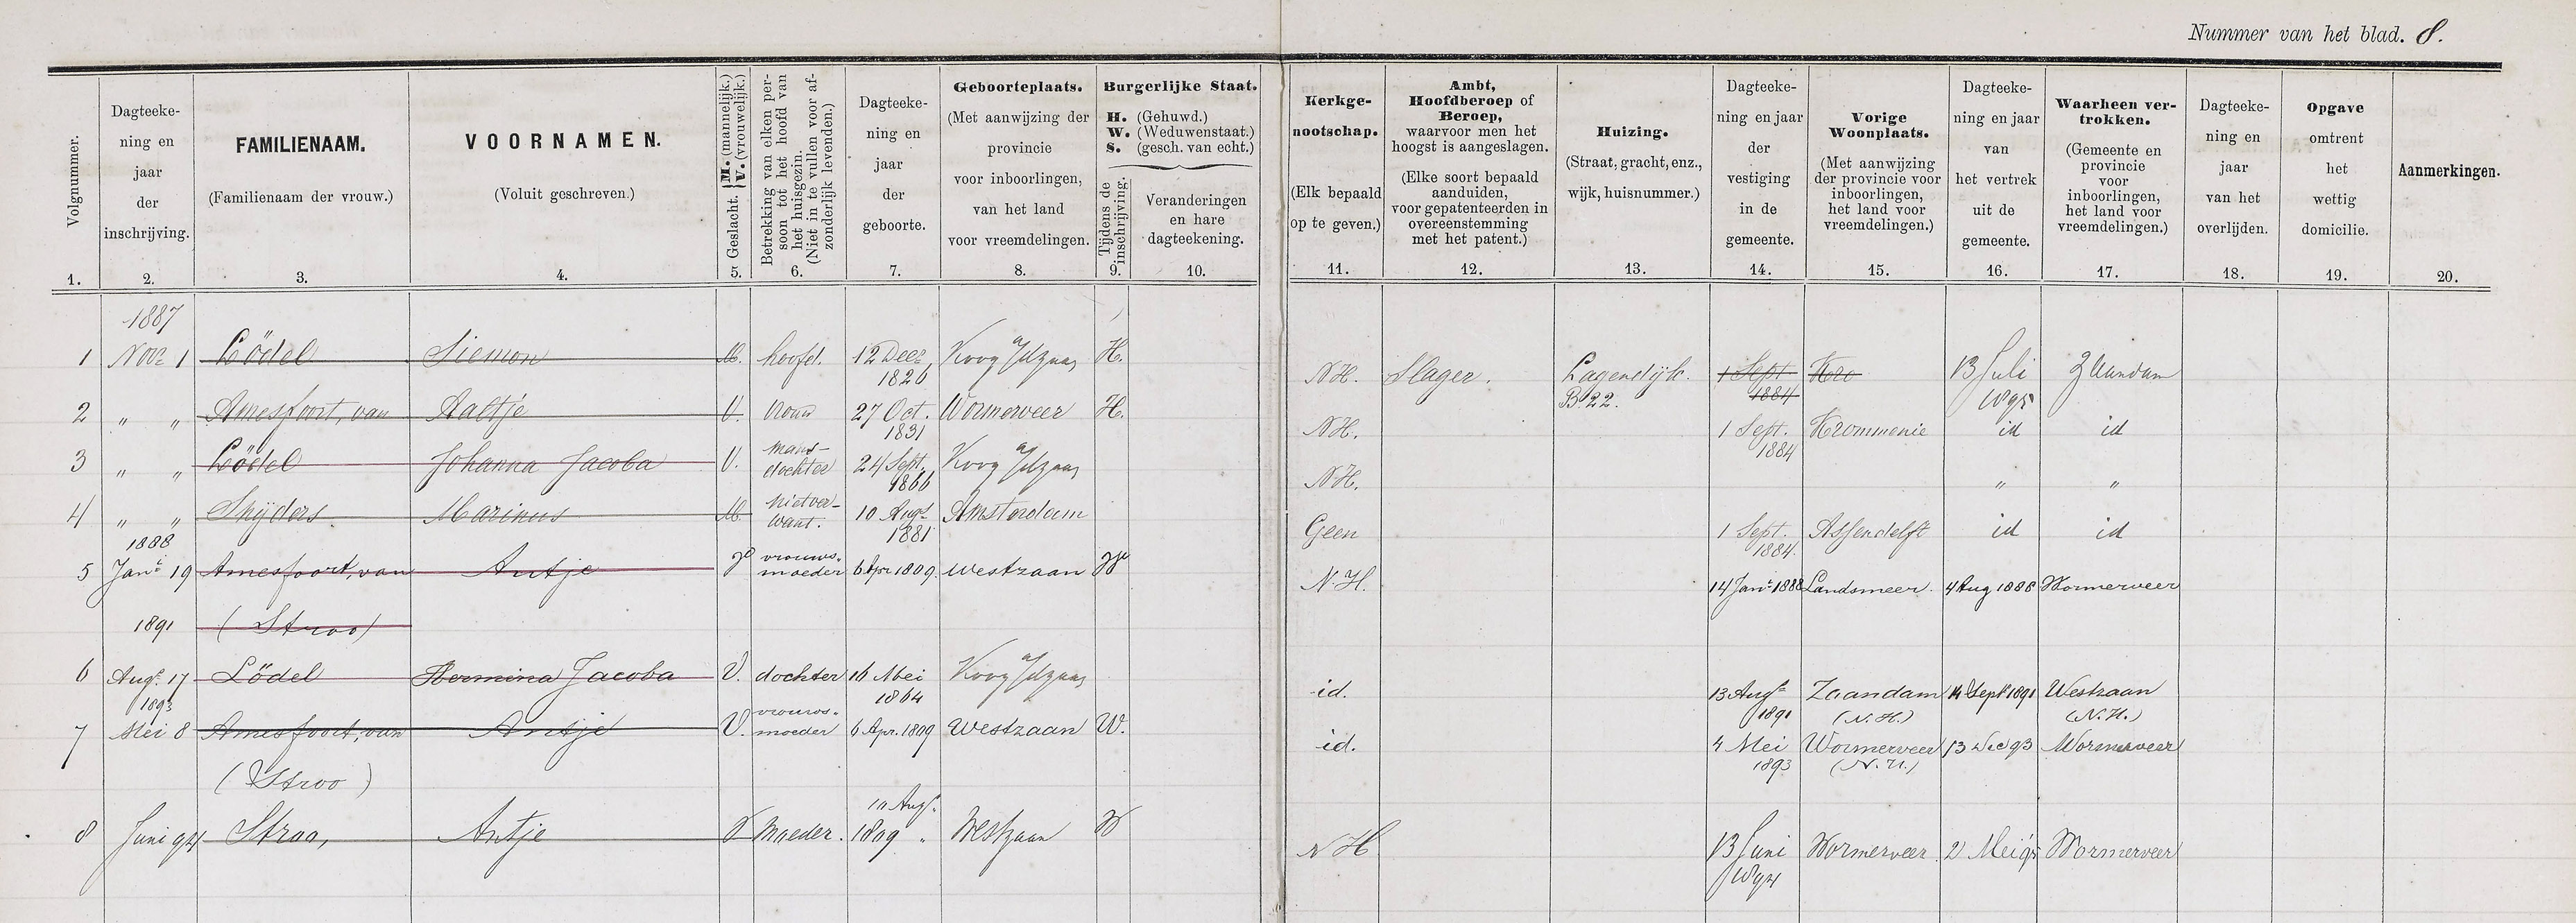 Nummer van het blad. 8.
Volgnummer.
1.
Dagteeke-
ning en
jaar
der
inschrijving.
2.
FAMILIENAAM.
(Familienaam der vrouw.)
3.
VOORNAMEN.
(Voluit geschreven.)
4.
Geslacht. { M. (mannelijk.) V. (vrouwelijk.)
5.
Betrekking van elken per-
soon tot het hoofd van
het huisgezin.
(Niet in te vullen voor af-
zonderlijk levenden.)
6.
Dagteeke-
ning en
jaar
der
geboorte.
7.
Geboorteplaats.
(Met aanwijzing der
provincie
voor inboorlingen,
van het land
voor vreemdelingen.
8.
Burgerlijke Staat.
H. (Gehuwd.)
W. (Weduwenstaat.)
S. (gesch. van echt.)
Tijdens de
inschrijving.
9.
Veranderingen
en hare
dagteekening.
10.
Kerkge-
nootschap.
(Elk bepaald
op te geven.)
11.
Ambt,
Hoofdberoep of
Beroep,
waarvoor men het
hoogst is aangeslagen.
(Elke soort bepaald
aanduiden,
voor gepatenteerden in
overeenstemming
met het patent.)
12.
Huizing.
(Straat, gracht, enz.,
wijk, huisnummer.)
13.
Dagteeke-
ning en jaar
der
vestiging
in de
gemeente.
14.
Vorige
Woonplaats.
(Met aanwijzing
der provincie voor
inboorlingen,
het land voor
vreemdelingen.)
15.
Dagteeke-
ning en jaar
van
het vertrek
uit de
gemeente.
16.
Waarheen ver-
trokken.
(Gemeente en
provincie
voor
inboorlingen,
het land voor
vreemdelingen.)
17.
Dagteeke-
ning en
jaar
van het
overlijden.
18.
Opgave
omtrent
het
wettig
domicilie.
19.
Aanmerkingen.
20.
1887
1 Novr 1 Lödel Siemon M. hoofd. 12 Decr 1826 Koog a/d Zaan H. N.H. Slager. Lagendijk. B. 22. 1 Sept 1884 13 Juli 1895 Zaandam
2 " " Amesfoort, van Aaltje V. vrouw 27 Oct. 1831 Wormerveer H. N.H. 1 Sept. 1884 Krommenie id id
3 " " Lödel Johanna Jacoba V. mans-dochter 24 Sept. 1866 Koog a/d Zaan N.H. " "
4 " " Snijders Marinus M. Niet ver-want. 10 Augs 1881 Amsterdam Geen 1 Sept. 1884. Assendelft id id
1888
5 Jani 19 Amesfoort, van Antje V vrouws-moeder 6 Apr 1809. Westzaan W N.H. 14 Jani 1888 Landsmeer. 4 Aug 1888 Wormerveer
(Stroo)
1891
6 Augs 17 Lödel Hermina Jacoba V. dochter 16 Mei 1864 Koog a/d Zaan id. 13 Augs 1891 Zaandam (N.H.) 14 Sept 1891 Westzaan (N.H.)
1893
7 Mei 8 Amesfoort, van Antje V. vrouws-moeder 6 Apr. 1809 Westzaan W. id. 4 Mei 1893 Wormerveer (N.H.) 13 Dec 93 Wormerveer
(Stroo)
8 Juni 94 Stroo, Antje V Moeder. 10 Augs. 1809 " Westzaan W N H 13 Juni 1894 Wormerveer 2 Mei 95 Wormerveer